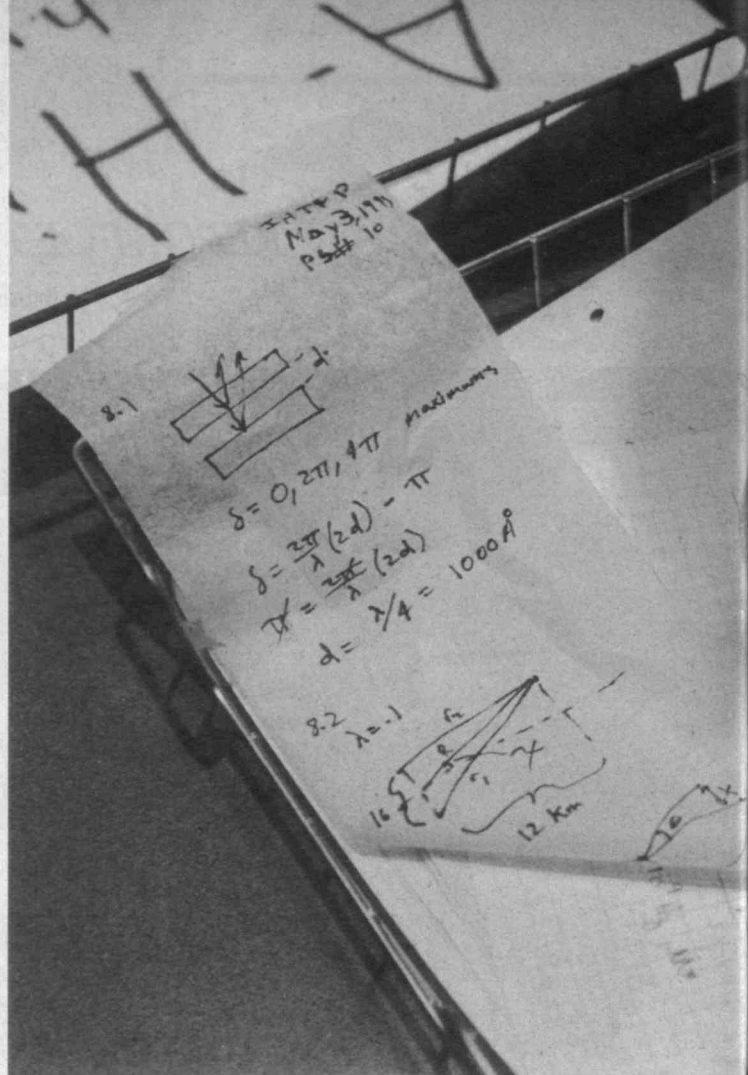 A
H
May 3, 19
PS# 10
8.1
d
δ = 0, 2π, 4π maximums
δ = 2π/λ (2d) - π
π = 2π/λ (2d)
d = λ/4 = 1000 Å
8.2
λ = .1
r₂
R
r₁
16
12 Km
θ
x